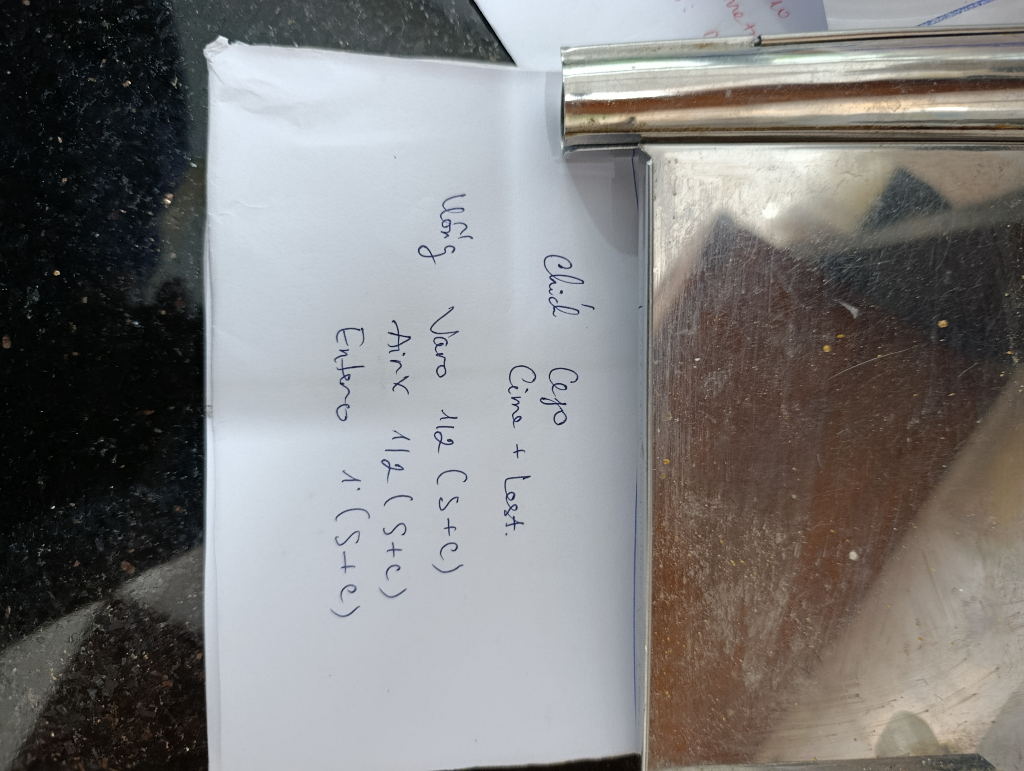 Chích Cefo
Cime + Lest.
Uống Varo 1/2 (S+C)
Airx 1/2 (S+C)
Entero 1 (S+C)